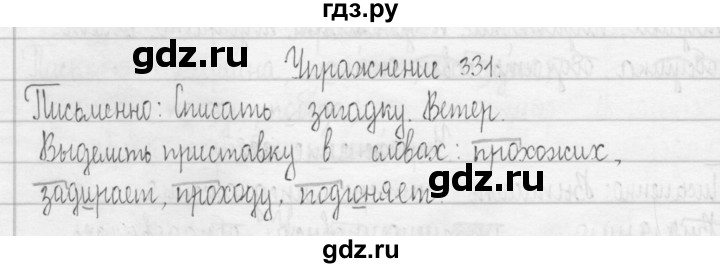 гдз.ру
gdz.ru gdz.ru
Упражнение 331.
Письменно: Списать загадку. Ветер.
Выделить приставку в словах: прохожих,
задирает, проходу, подгоняет.
gdz.ru
gdz.ru
gdz.ru